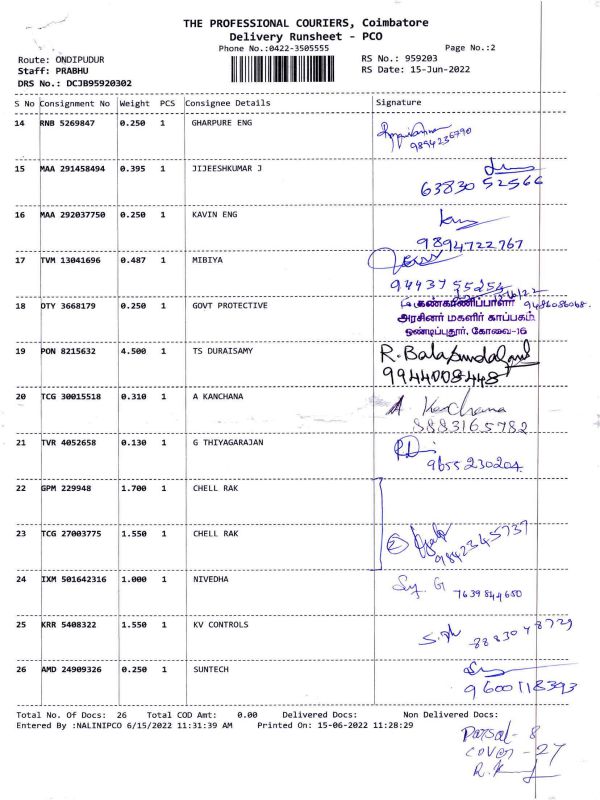 THE PROFESSIONAL COURIERS, Coimbatore
Delivery Runsheet - PCO
Phone No.:0422-3505555 Page No.:2
Route: ONDIPUDUR RS No.: 959203
Staff: PRABHU RS Date: 15-Jun-2022
DRS No.: DCJB95920302
S No Consignment No Weight PCS Consignee Details Signature
14 RNB 5269847 0.250 1 GHARPURE ENG
9894236790
15 MAA 291458494 0.395 1 JIJEESHKUMAR J
63830 52566
16 MAA 292037750 0.250 1 KAVIN ENG
9894722767
17 TVM 13041696 0.487 1 MIBIYA
9443755254
18 DTY 3668179 0.250 1 GOVT PROTECTIVE
கண்காணிப்பாளர் 9486086068.
அரசினர் மகளிர் காப்பகம்
ஒண்டிப்புதூர், கோவை-16
19 PON 8215632 4.500 1 TS DURAISAMY
R. Balasundaram
9944008448
20 TCG 30015518 0.310 1 A KANCHANA
A Kanchana
8883165782
21 TVR 4052658 0.130 1 G THIYAGARAJAN
9655230204
22 GPM 229948 1.700 1 CHELL RAK
23 TCG 27003775 1.550 1 CHELL RAK
9842345737
24 IXM 501642316 1.000 1 NIVEDHA
7639844650
25 KRR 5408322 1.550 1 KV CONTROLS
8883048729
26 AMD 24909326 0.250 1 SUNTECH
9600118393
Total No. Of Docs: 26 Total COD Amt: 0.00 Delivered Docs: Non Delivered Docs:
Entered By :NALINIPCO 6/15/2022 11:31:39 AM Printed On: 15-06-2022 11:28:29
Parsal - 8
cover - 27